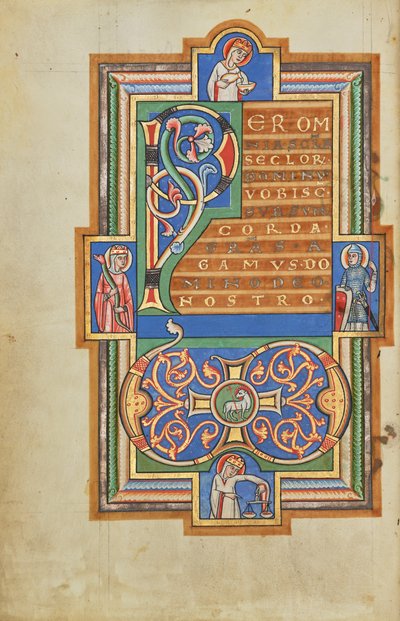 PER OM
NIA SCLA
SECLOR·
DOMINV
VOBISC·
SVRSVM
CORDA·
GRAS·A
GAMVS·DO
MINO DEO
NOSTRO·